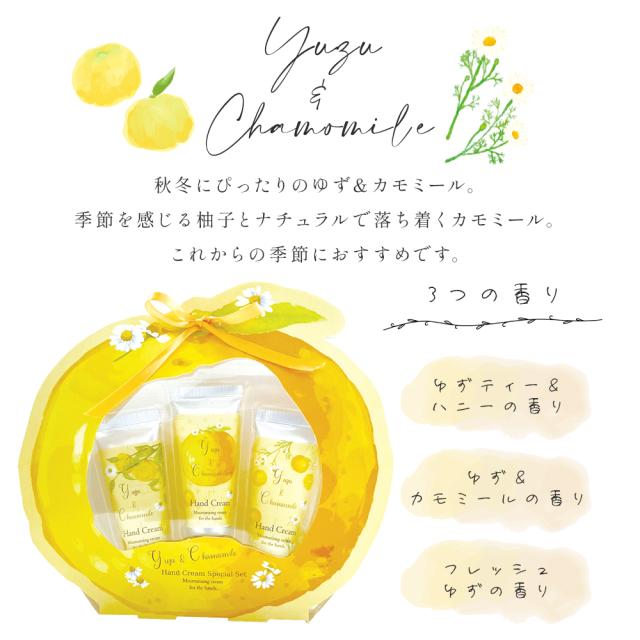 Yuzu
&
Chamomile
秋冬にぴったりのゆず&カモミール。
季節を感じる柚子とナチュラルで落ち着くカモミール。
これからの季節におすすめです。
3つの香り
ゆずティー&
ハニーの香り
ゆず&
カモミールの香り
フレッシュ
ゆずの香り
Yuzu
&
Chamomile
Hand Cream
Moisturising cream
for the hands
Yuzu
& Chamomile
Hand Cream
Moisturising cream
for the hands
Yuzu
&
Chamomile
Hand Cream
Moisturising cream
for the hands
Yuzu & Chamomile
Hand Cream Special Set
Moisturising cream
for the hands.